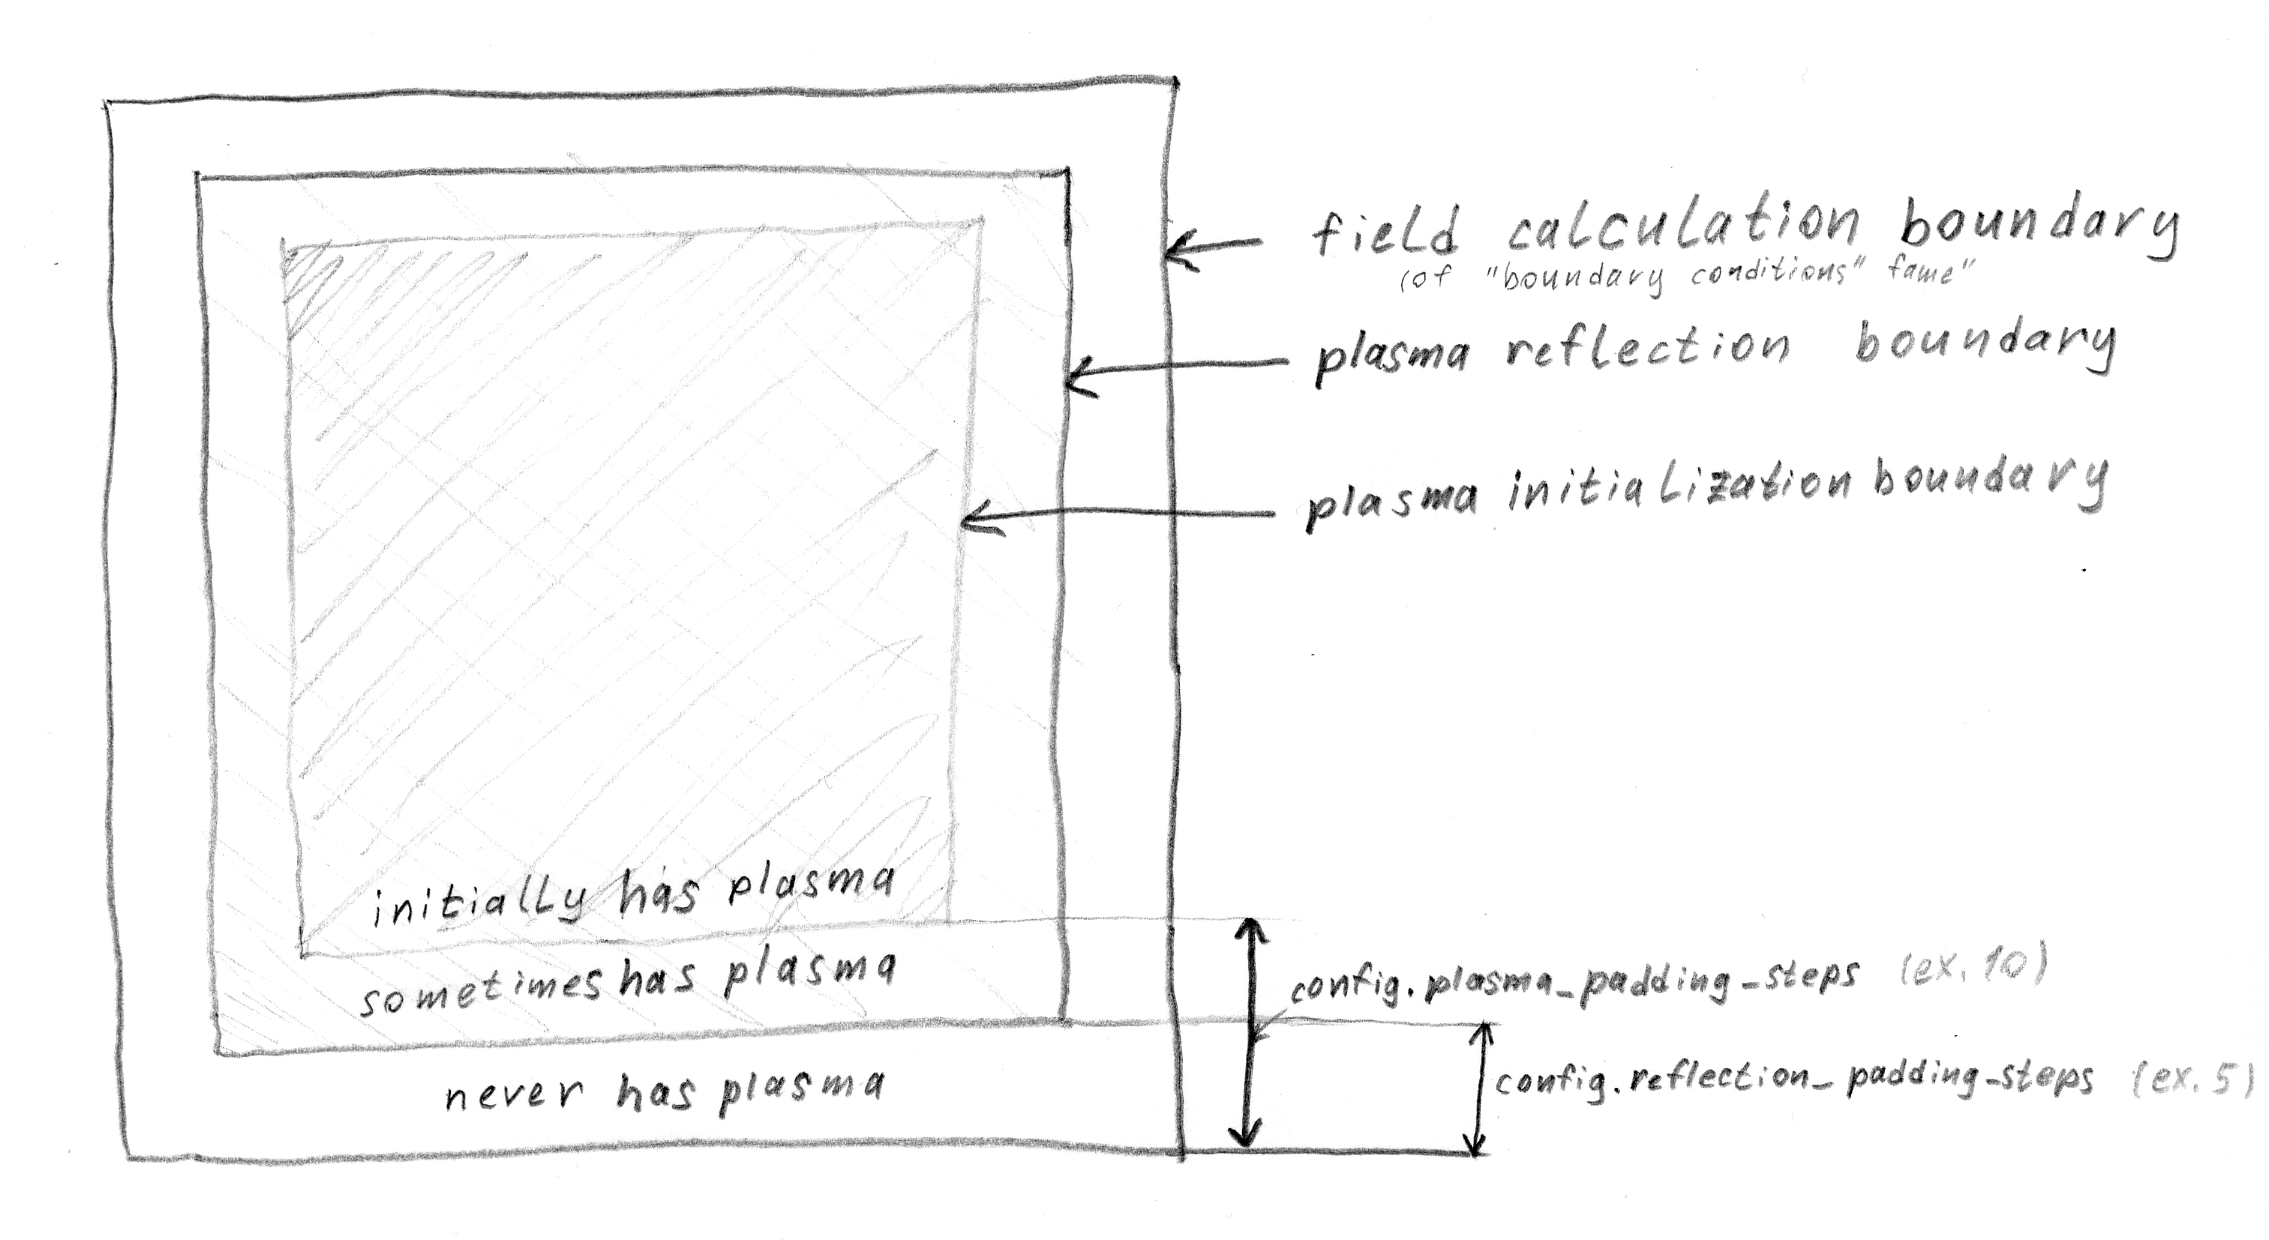 field calculation boundary
(of "boundary conditions" fame"
plasma reflection boundary
plasma initialization boundary
initially has plasma
sometimes has plasma
never has plasma
config.plasma_padding_steps (ex. 10)
config.reflection_padding_steps (ex. 5)